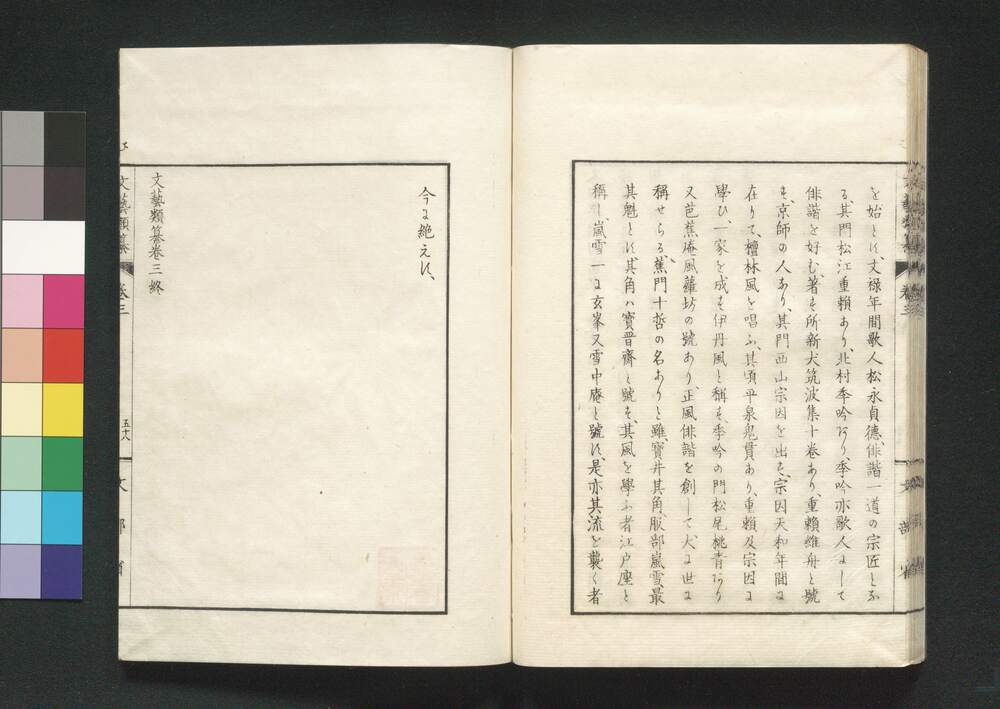 を始とす、文禄年間歌人松永貞德、俳諧一道の宗匠とな
る、其門松江重賴あり、北村季吟あり、季吟亦歌人にして
俳諧を好む、著す所新犬筑波集十卷あり、重賴維舟と號
す、京師の人なり、其門西山宗因を出す、宗因天和年間に
在りて、檀林風を唱ふ、其頃平泉鬼貫あり、重賴及宗因に
學ひ、一家を成す伊丹風と稱す、季吟の門松尾桃青あり
又芭蕉庵風蘿坊の號あり、正風俳諧を創して、大に世に
稱せらる、蕉門十哲の名ありと雖、寶井其角服部嵐雪、最
其魁とす、其角ハ寶晋齋と號す、其風を學ふ者江戸座と
稱し、嵐雪一に玄峯又雪中庵と號す、是亦其流を襲く者
今に絶えす、
文藝類纂卷三終
文藝類纂
卷三
五十八
文部省